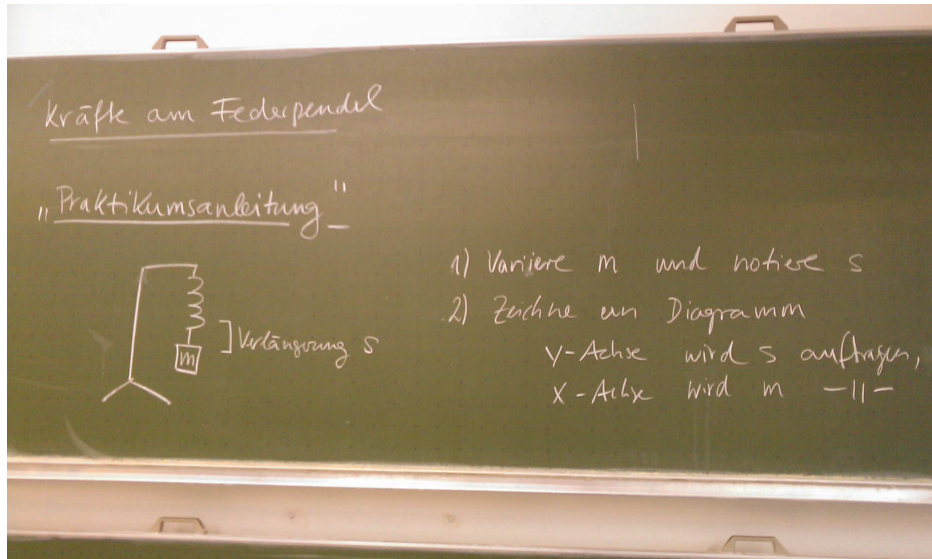 Kräfte am Federpendel
"Praktikumsanleitung"
m
Verlängerung s
1) Variiere m und notiere s
2) Zeichne ein Diagramm
y-Achse wird s auftragen,
x-Achse wird m —||—